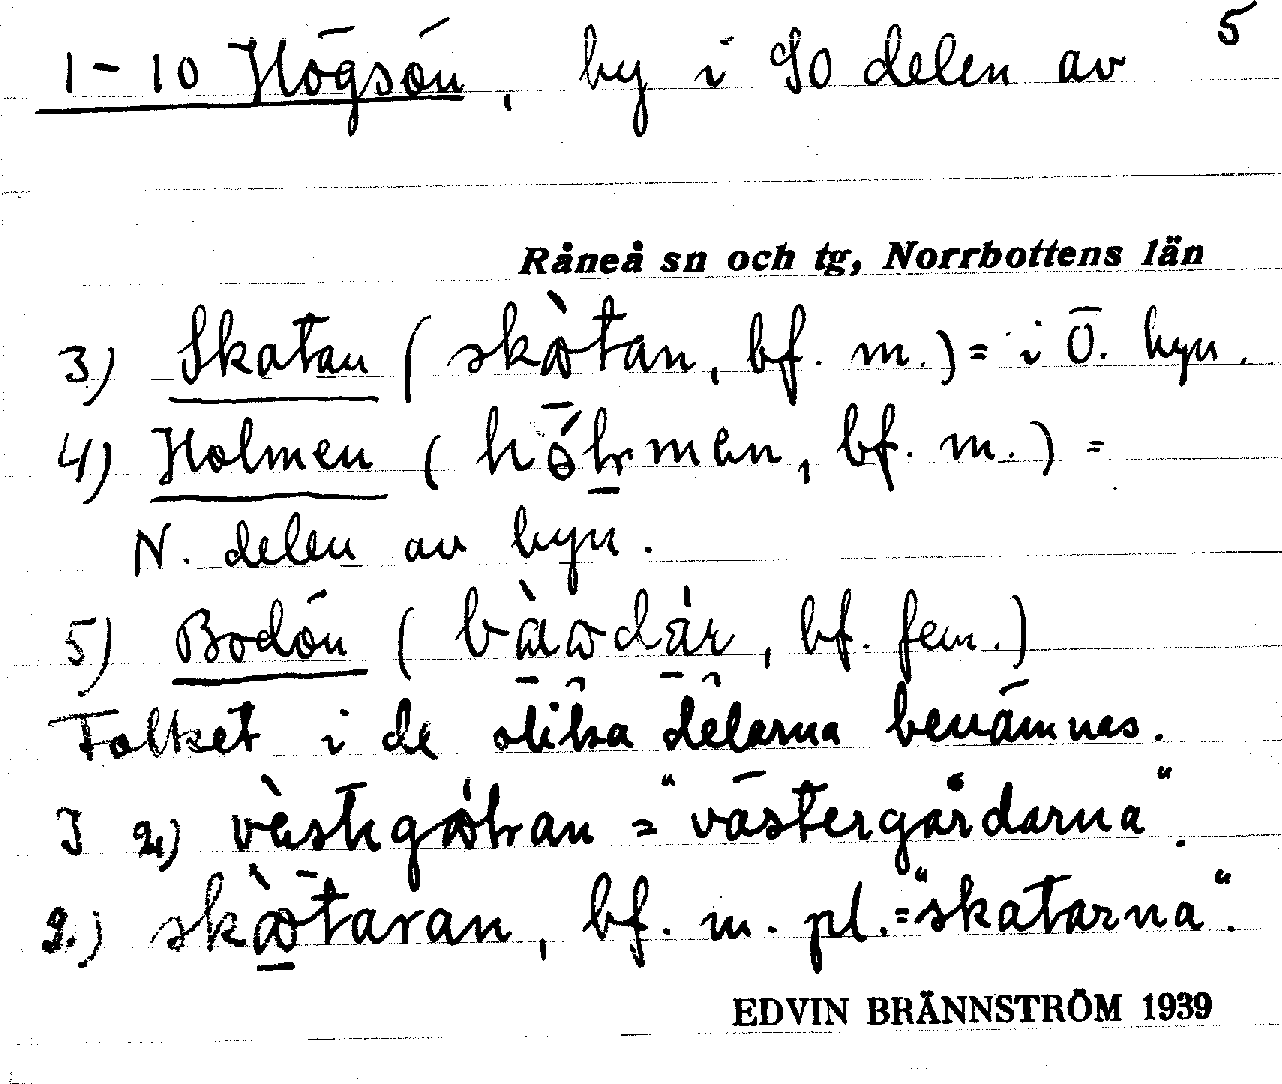 5
1-10 Högsön, by i SO delen av
Råneå sn och tg, Norrbottens län
3) Skatan ( bf. m.) = i Ö. byn.
4) Holmen ( bf. m.) =
N. delen av byn.
5) Bodön ( bf. fem.)
Folket i de olika delarna benämnes.
I 2) = "västergårdarna".
2.) bf. m. pl. = "skatarna".
EDVIN BRÄNNSTRÖM 1939